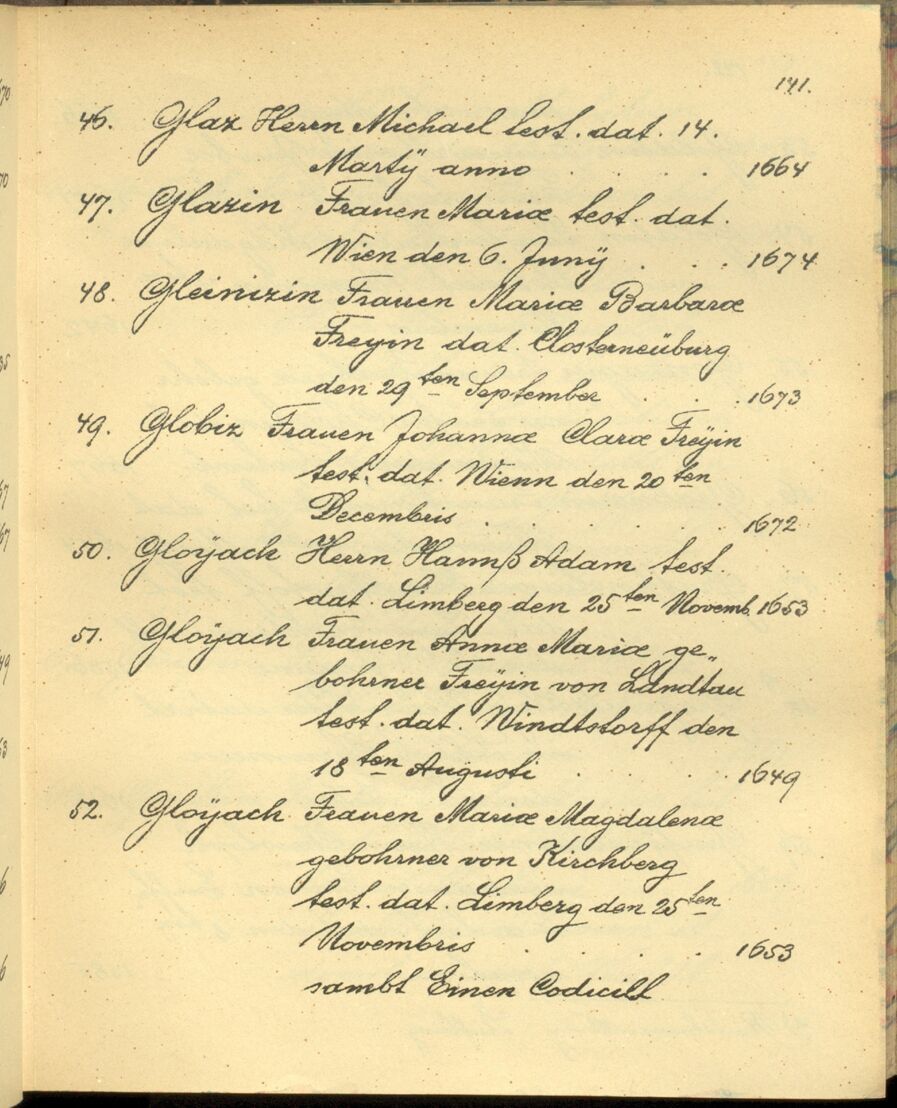 141.
46. Glaz Herrn Michael test. dat. 14.
Martÿ anno . . . . 1664
47. Glazin Frauen Mariæ test. dat.
Wien den 6. Junÿ . . . 1674
48. Gleinizin Frauen Mariæ Barbaræ
Freyin dat. Closterneüburg
den 29ten September . . . 1673
49. Globiz Frauen Johannæ Claræ Freÿin
test. dat. Wienn den 20ten
Decembris . . . . . 1672
50. Gloÿach Herrn Hannß Adam test.
dat. Limberg den 25ten Novemb. 1653
51. Gloÿach Frauen Annæ Mariæ ge„
bohrner Freÿin von Landtau
test. dat. Windtstorff den
18ten Augusti . . . 1649
52. Gloÿach Frauen Mariæ Magdalenæ
gebohrner von Kirchberg
test. dat. Limberg den 25ten
Novembris . . . . . 1653
sambt Einen Codicill